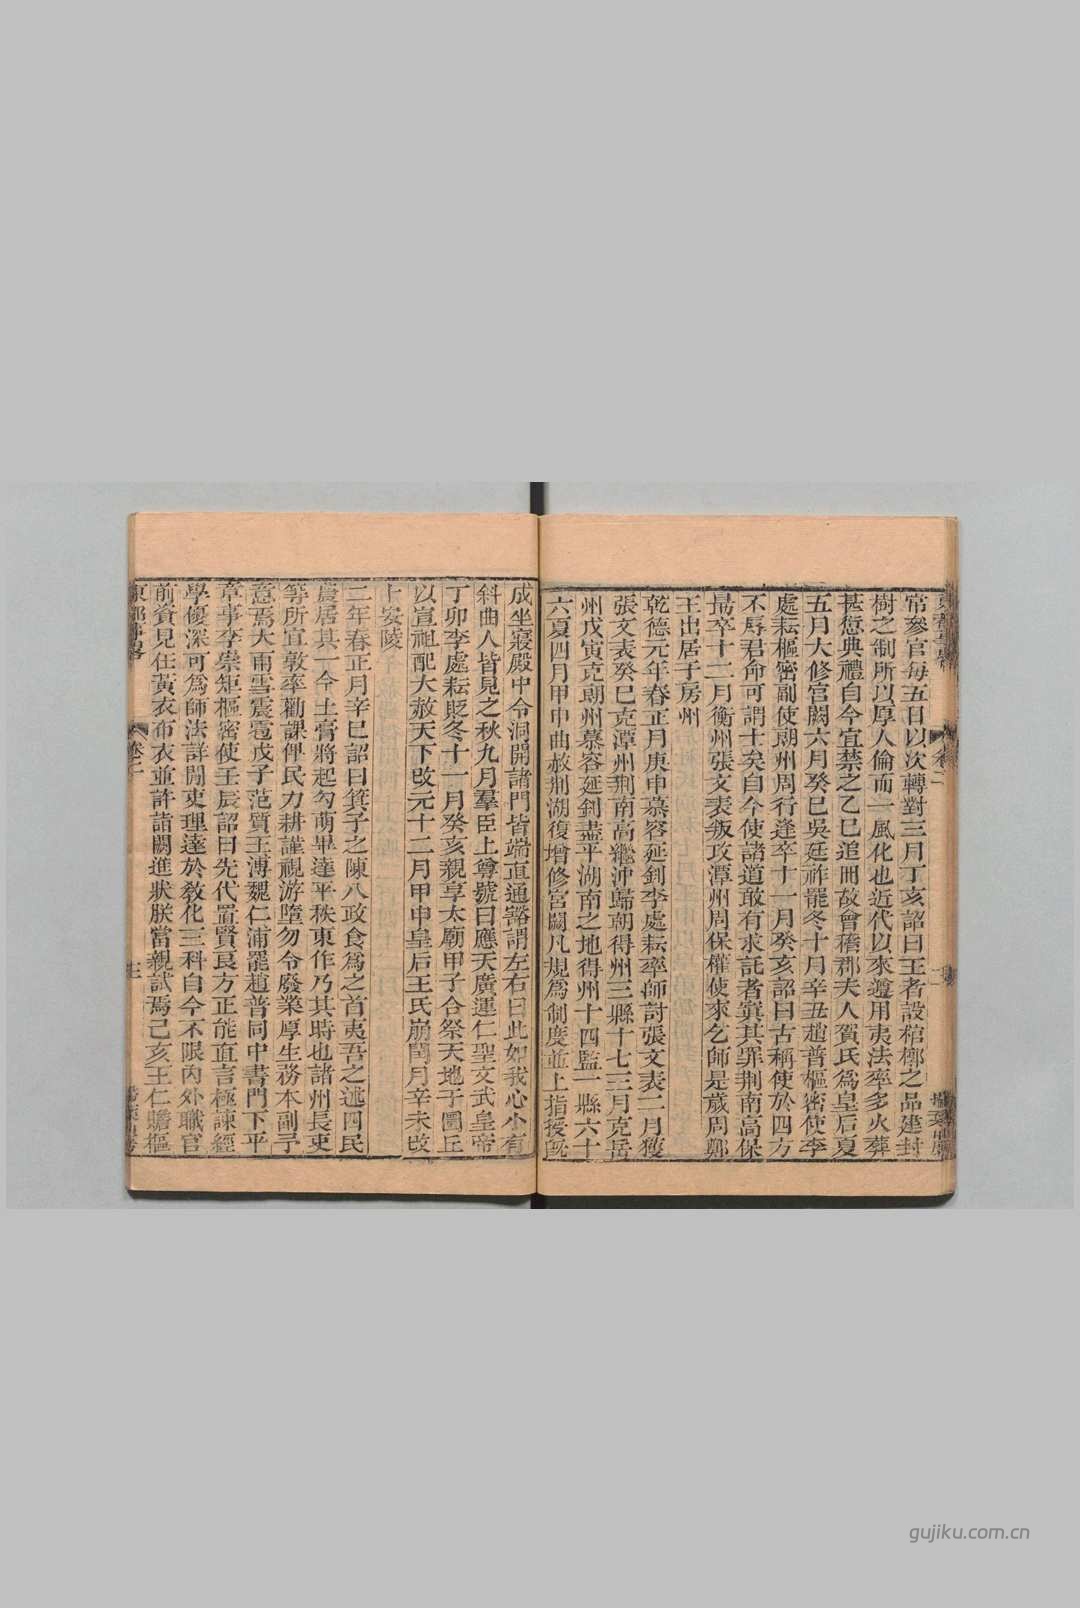 常參官每五日以次轉對三月丁亥詔曰王者設棺槨之品建封
樹之制所以厚人倫而一風化也近代以來遵用夷法率多火葬
甚愆典禮自今宜禁之乙巳追冊故會稽郡夫人賀氏為皇后夏
五月大修宮闕六月癸巳吳廷祚罷冬十月辛丑趙普樞密使李
處耘樞密副使朗州周行逢卒十一月癸亥詔曰古稱使於四方
不辱君命可謂士矣自今使諸道敢有求託者寘其罪荆南高保
勗卒十二月衡州張文表叛攻潭州周保權使來乞師是歲周鄭
王出居于房州
乾德元年春正月庚申慕容延釗李處耘率師討張文表二月獲
張文表癸巳克潭州荆南高繼沖歸朝得州三縣十七三月克岳
州戊寅克朗州慕容延釗盡平湖南之地得州十四監一縣六十
六夏四月甲申曲赦荆湖復增修宮闕凡規為制度並上指授既
成坐寢殿中令洞開諸門皆端直通豁謂左右曰此如我心小有
斜曲人皆見之秋九月羣臣上尊號曰應天廣運仁聖文武皇帝
丁卯李處耘貶冬十一月癸亥親享太廟甲子合祭天地于圜丘
以宣祖配大赦天下改元十二月甲申皇后王氏崩閏月辛未改
卜安陵
二年春正月辛巳詔曰箕子之陳八政食為之首夷吾之述四民
農居其一今土膏將起勾萌畢達平秩東作乃其時也諸州長吏
等所宜敦率勸課俾民力耕謹視游墮勿令廢業厚生務本副予
意焉大雨雪震雹戊子范質王溥魏仁浦罷趙普同中書門下平
章事李崇矩樞密使壬辰詔曰先代置賢良方正能直言極諫經
學優深可為師法詳閒吏理達於教化三科自今不限內外職官
前資見任黃衣布衣並許詣闕進狀朕當親試焉己亥王仁贍樞
東都事略 卷二 三
gujiku.com.cn